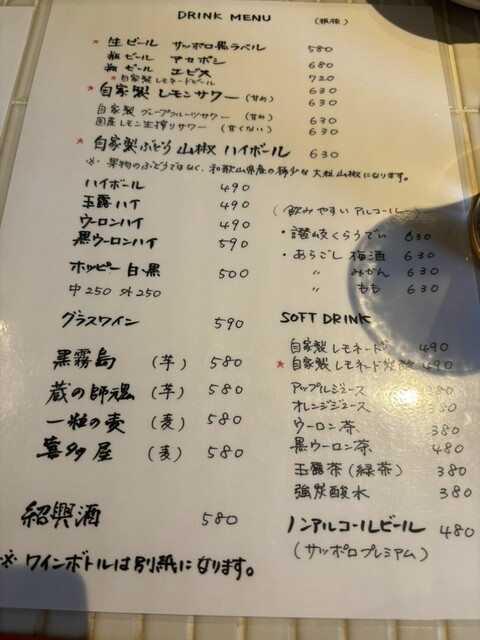 DRINK MENU (税抜)
* 生ビール サッポロ黒ラベル 580
瓶ビール アカボシ 680
瓶ビール エビス 720
* 自家製 レモネードビール 630
* 自家製 レモンサワー (甘め) 630
自家製 グレープフルーツサワー (甘め) 630
国産レモン生搾りサワー (甘くない) 630
* 自家製ぶどう山椒 ハイボール 630
※ 果物のぶどうではなく、和歌山県産の稀少な大粒山椒になります。
ハイボール 490
玉露ハイ 490
ウーロンハイ 490
黒ウーロンハイ 590
ホッピー 白・黒 500
中250 外250
グラスワイン 590
黒霧島 (芋) 580
蔵の師魂 (芋) 580
一粒の麦 (麦) 580
喜多屋 (麦) 580
紹興酒 580
※ ワインボトルは別紙になります。
(飲みやすいアルコール)
・讃岐くらうでぃ 630
・あらごし 梅酒 630
〃 みかん 630
〃 もも 630
SOFT DRINK
自家製 レモネード 490
* 自家製 レモネード炭酸 490
アップルジュース
オレンジジュース
ウーロン茶 380
黒ウーロン茶 480
玉露茶(緑茶) 380
強炭酸水 380
ノンアルコールビール 480
(サッポロプレミアム)